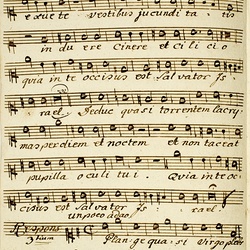 exue te vestibus jucundita tis
indu ere cinere et cilicio
quia in te occisus est Salvator Js
rael. Deduc quasi torrentem lacry
mas per diem et noctem et non taceat
pupilla oculi tui. Quia in te oc
cisus est Salvator Js rael.
un poco adag
Respons
Plange quasi Virgo